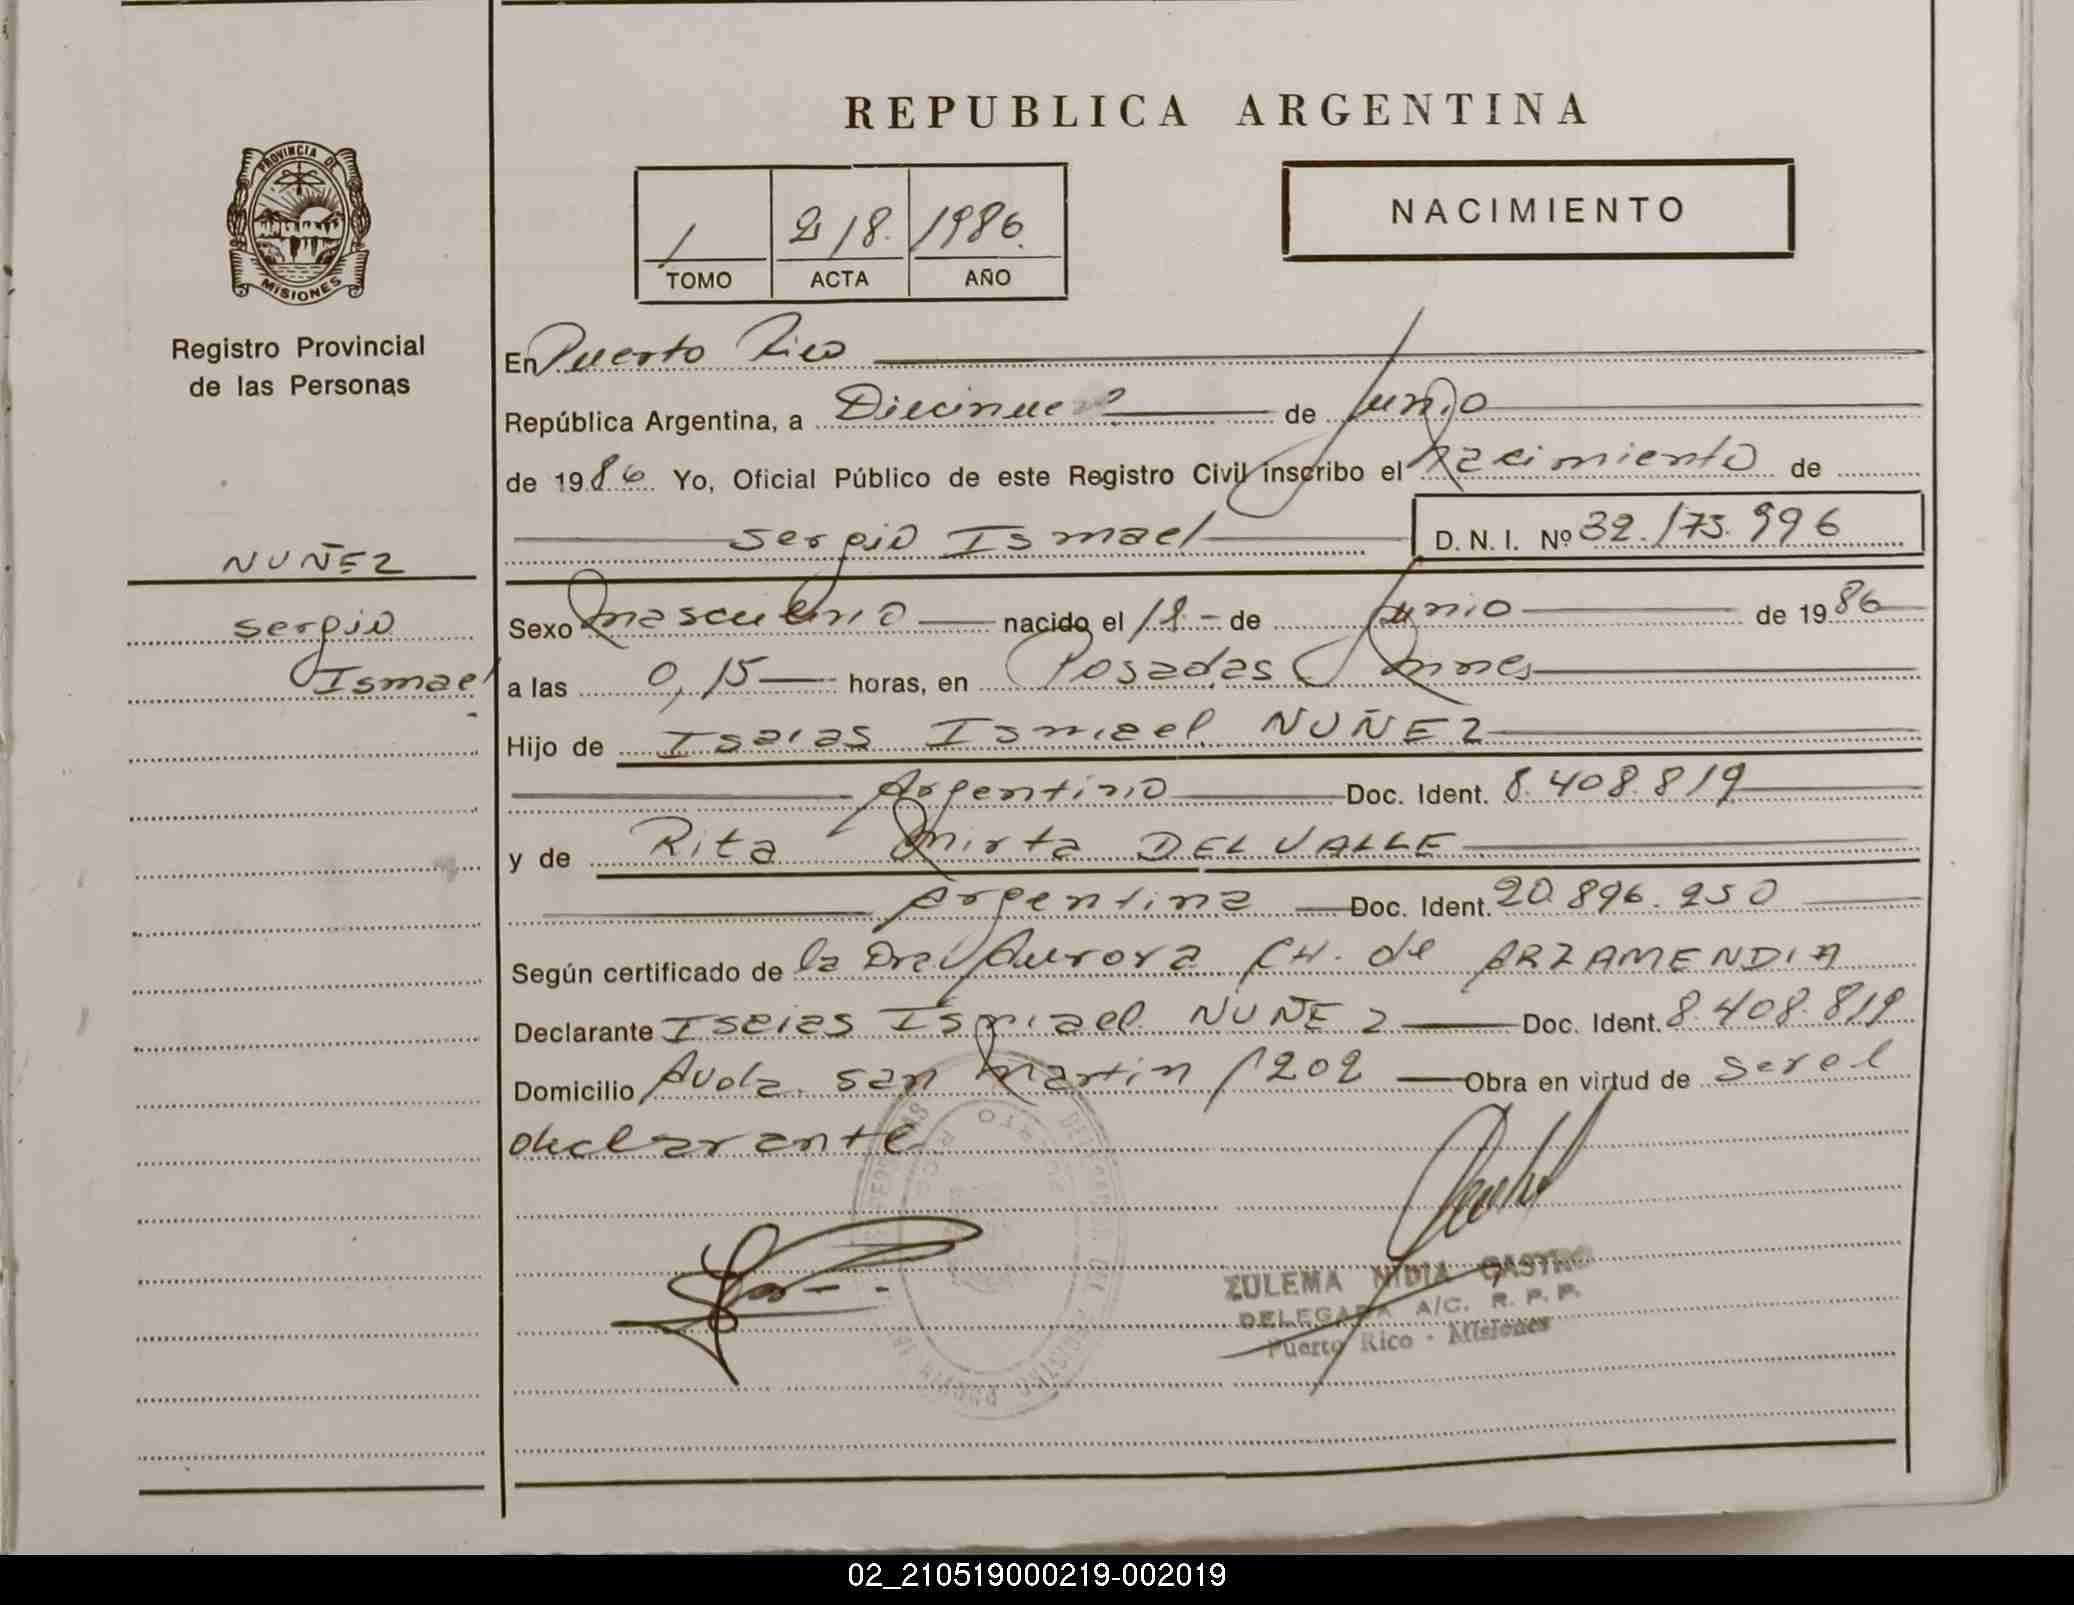 REPUBLICA ARGENTINA
PROVINCIA DE
MISIONES
1 218. 1986.
TOMO ACTA AÑO
NACIMIENTO
Registro Provincial
de las Personas
NUÑEZ
Sergio
Ismael
En Puerto Rico
República Argentina, a Diecinueve de Junio
de 1986 Yo, Oficial Público de este Registro Civil inscribo el nacimiento de
Sergio Ismael D. N. I. Nº 32.175.996
Sexo masculino nacido el 18 - de Junio de 1986
a las 0,15 horas, en Posadas Mnes
Hijo de Isaias Ismael NUÑEZ
Argentino Doc. Ident. 8.408.819
y de Rita Mirta DEL VALLE
Argentina Doc. Ident. 20.896.250
Según certificado de la Dra. Aurora CH. de ARZAMENDIA
Declarante Isaias Ismael NUÑEZ Doc. Ident. 8.408.819
Domicilio Avda. San Martin 1202 Obra en virtud de ser el
declarante
ZULEMA NIDIA CASTRO
DELEGADA A/C. R. P. P.
Puerto Rico - Misiones
02_210519000219-002019